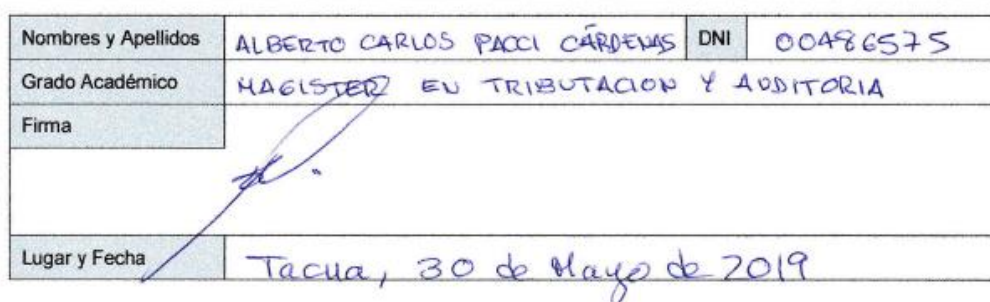 Nombres y Apellidos ALBERTO CARLOS PACCI CÁRDENAS DNI 00486575
Grado Académico MAGISTER EN TRIBUTACION Y AUDITORIA
Firma
Lugar y Fecha Tacna, 30 de Mayo de 2019